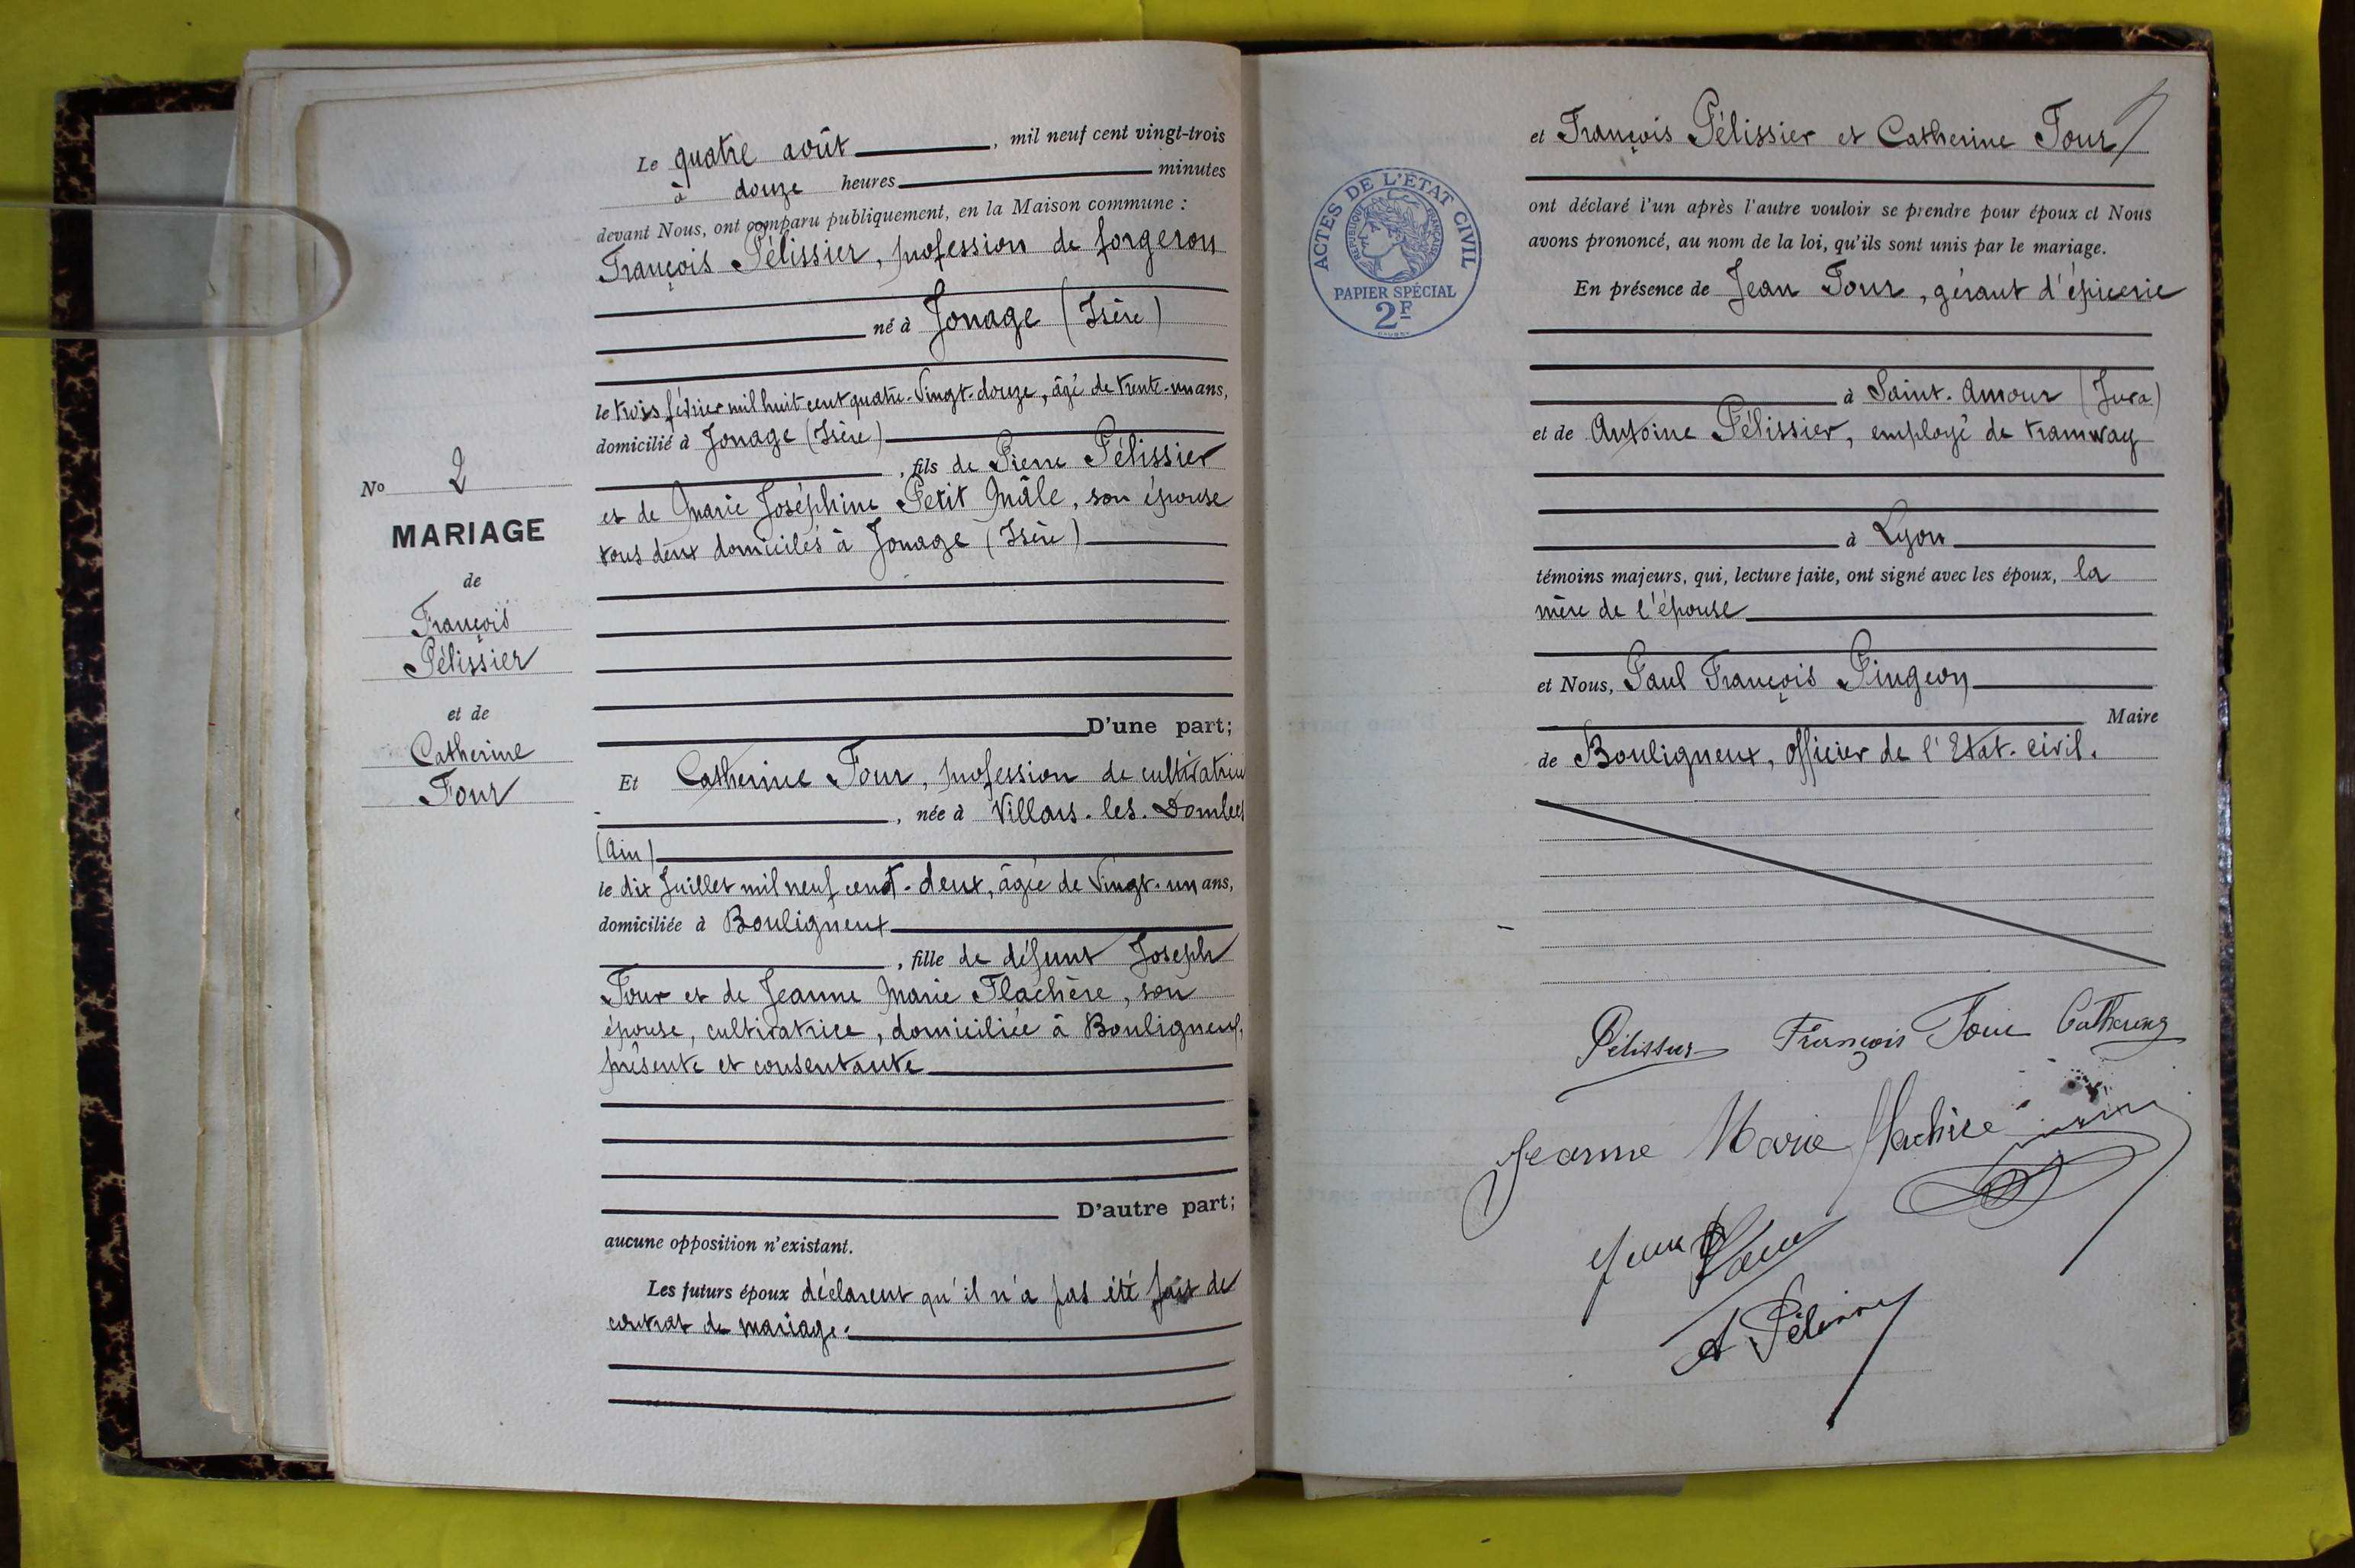 Le quatre août, mil neuf cent vingt-trois
à douze heures minutes
devant Nous, ont comparu publiquement, en la Maison commune :
François Pélissier, profession de forgeron
né à Jonage (Isère)
le trois février mil huit cent quatre-vingt-douze, âgé de trente-un ans,
domicilié à Jonage (Isère)
, fils de Pierre Pélissier
et de Marie Joséphine Petit Mâle, son épouse
tous deux domiciliés à Jonage (Isère)
D'une part;
Nº 2
MARIAGE
de
François
Pélissier
et de
Catherine
Four
Et Catherine Four, profession de cultivatrice
, née à Villars-les-Dombes
(Ain)
le dix Juillet mil neuf cent-deux, âgée de vingt-un ans,
domiciliée à Bouligneux
, fille de défunt Joseph
Four et de Jeanne Marie Flachère, son
épouse, cultivatrice, domiciliée à Bouligneux,
présente et consentante
D'autre part;
aucune opposition n'existant.
Les futurs époux déclarent qu'il n'a pas été fait de
contrat de mariage.
et François Pélissier et Catherine Four
ACTES DE L'ÉTAT CIVIL
RÉPUBLIQUE FRANÇAISE
PAPIER SPÉCIAL
2F
ont déclaré l'un après l'autre vouloir se prendre pour époux et Nous
avons prononcé, au nom de la loi, qu'ils sont unis par le mariage.
En présence de Jean Four, gérant d'épicerie
à Saint-Amour (Jura)
et de Antoine Pélissier, employé de tramway
à Lyon
témoins majeurs, qui, lecture faite, ont signé avec les époux, la
mère de l'épouse
et Nous, Paul François Pingeon
Maire
de Bouligneux, officier de l'Etat-civil.
Pélissier François Four Catherine
Jeanne Marie Flachère
Jean Four
A Pélissier